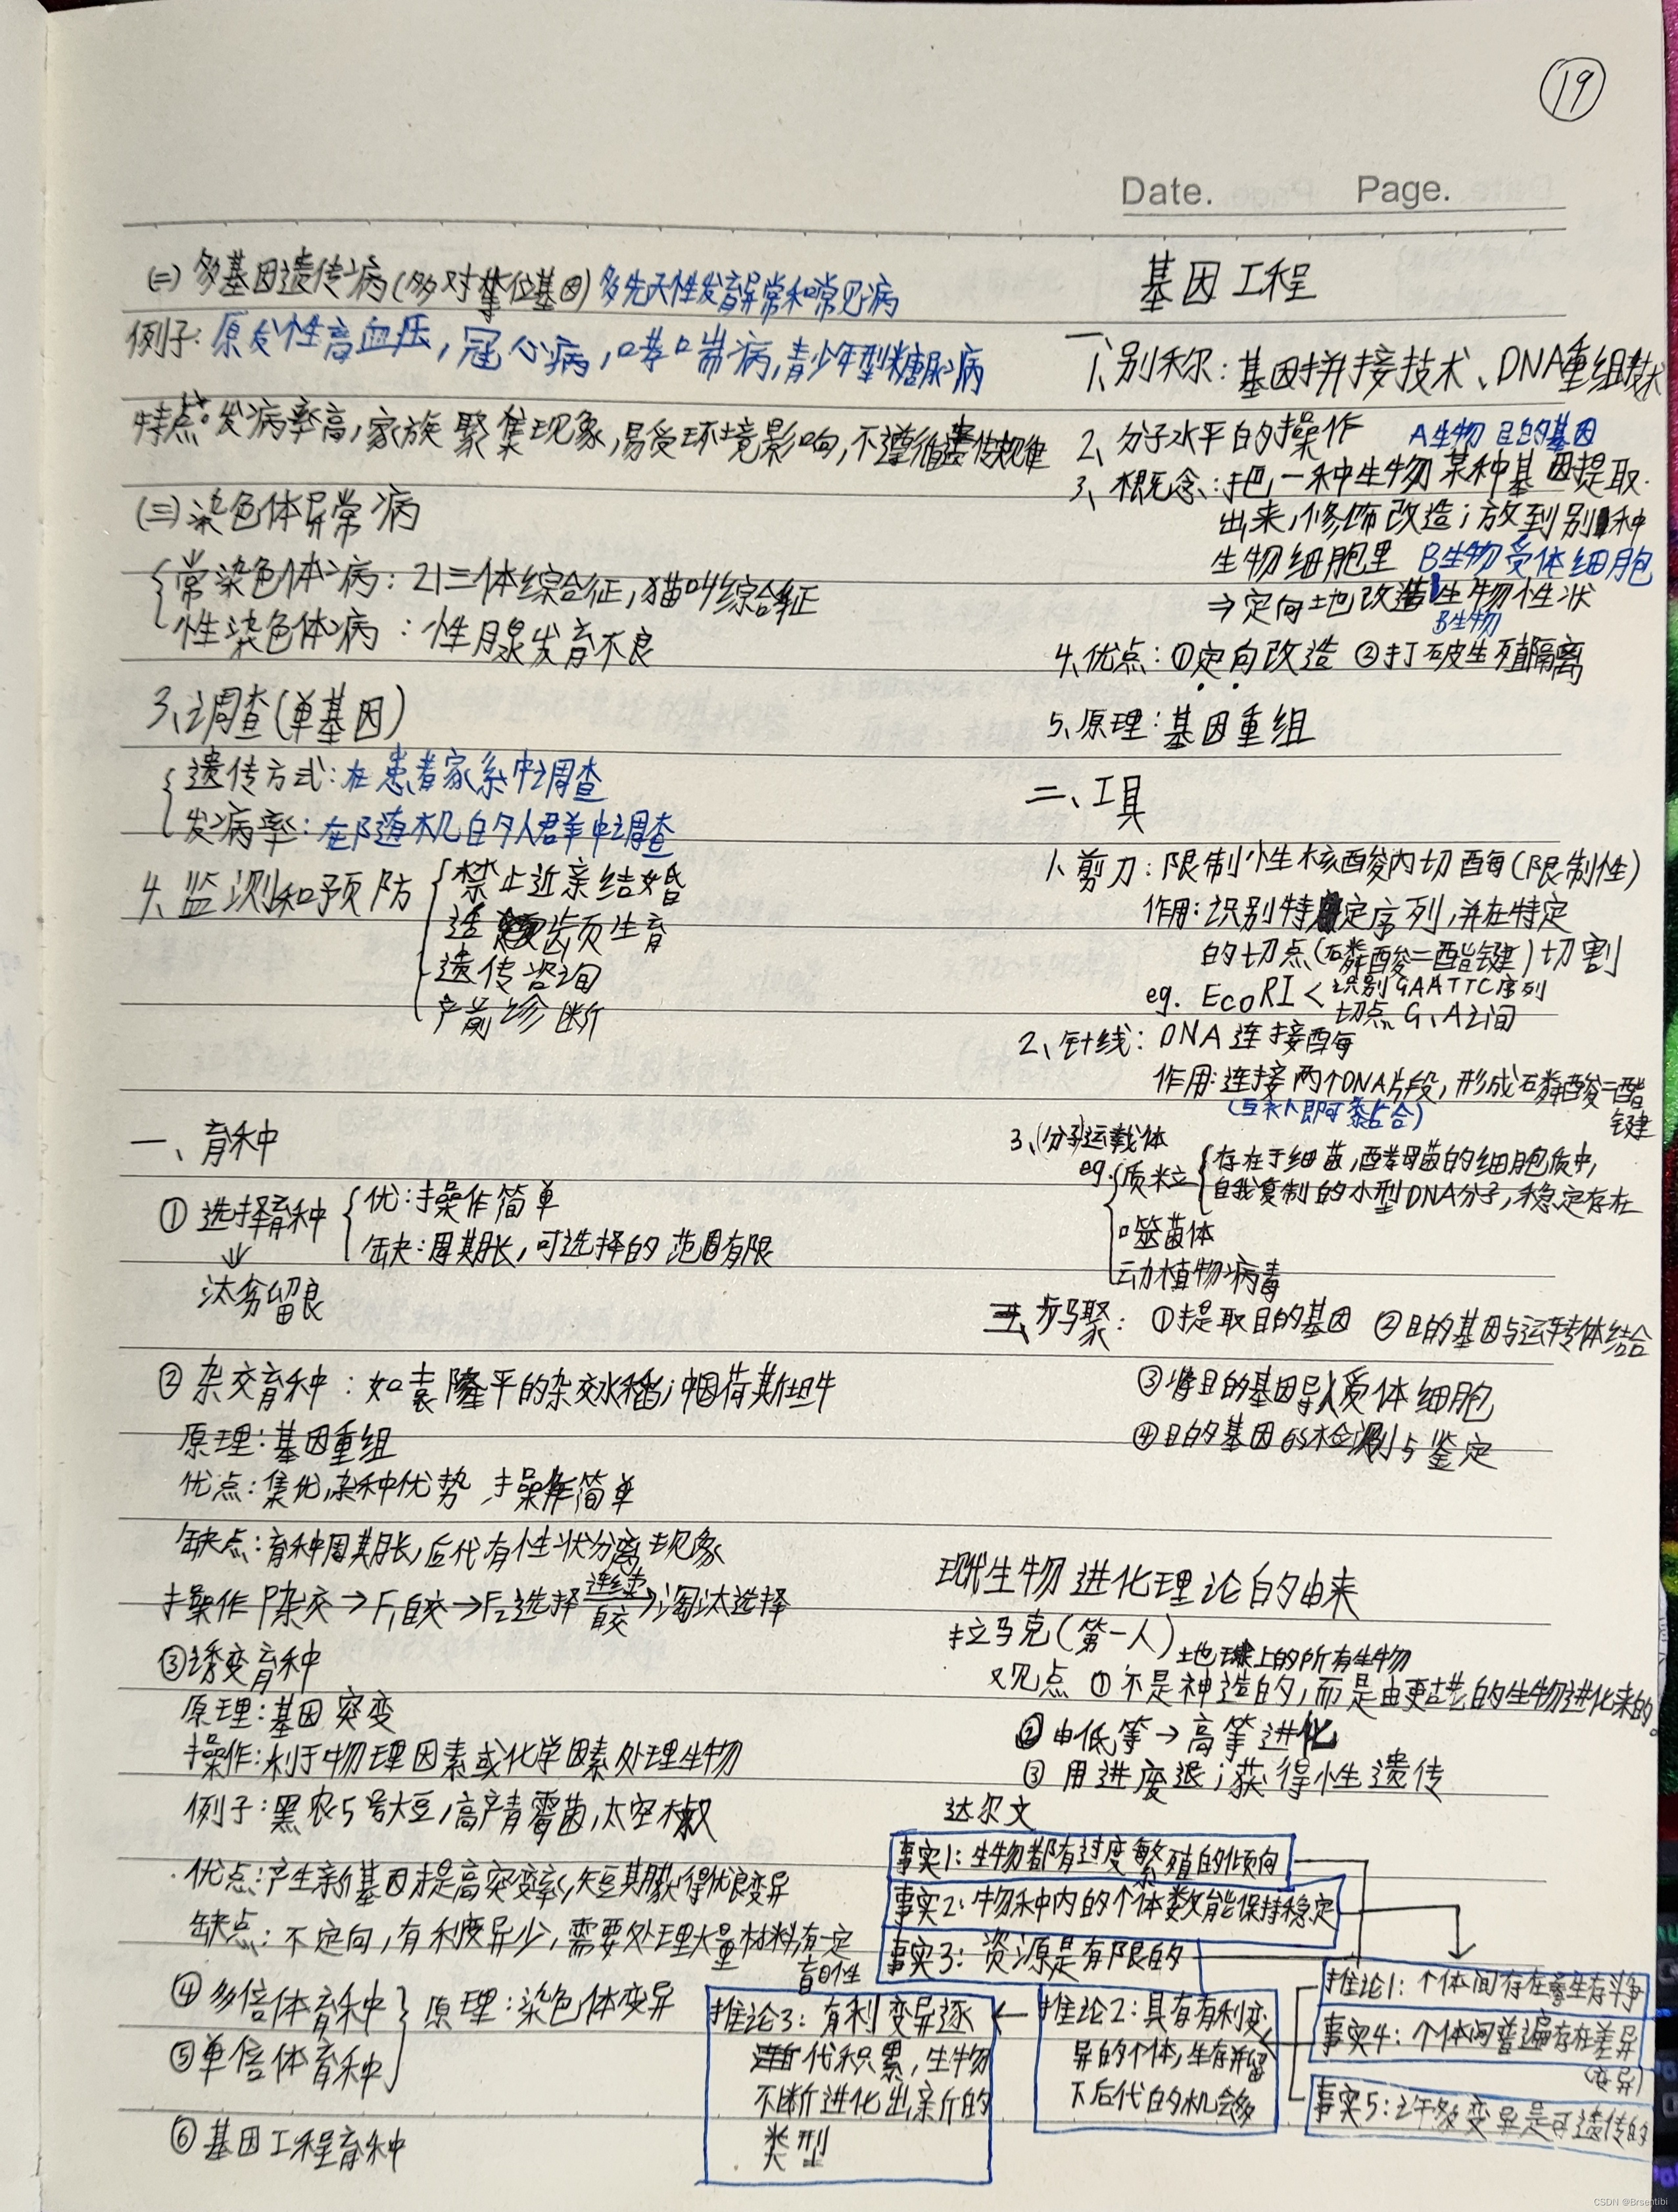 19
Date. Page.
(二) 多基因遗传病(多对等位基因) 多先天性发育异常和常见病
例子: 原发性高血压, 冠心病, 哮喘病, 青少年型糖尿病
特点: 发病率高, 家族聚集现象, 易受环境影响, 不遵循遗传规律
(三) 染色体异常病
常染色体病: 21三体综合征, 猫叫综合征
性染色体病: 性腺发育不良
3、调查(单基因)
遗传方式: 在患者家系中调查
发病率: 在随机的人群中调查
4、监测和预防
禁止近亲结婚
适龄生育
遗传咨询
产前诊断
一、育种
① 选择育种
优: 操作简单
缺: 周期长, 可选择的范围有限
汰劣留良
② 杂交育种: 如袁隆平的杂交水稻; 中国荷斯坦牛
原理: 基因重组
优点: 集优, 杂种优势, 操作简单
缺点: 育种周期长, 后代有性状分离现象
操作 P杂交→F₁自交→F₂选择 连续自交→淘汰选择
③ 诱变育种
原理: 基因突变
操作: 利于物理因素或化学因素处理生物
例子: 黑农5号大豆, 高产青霉菌, 太空椒
优点: 产生新基因, 提高突变率, 短期获得优良变异
缺点: 不定向, 有利变异少, 需要处理大量材料, 有一定
盲目性
④ 多倍体育种
⑤ 单倍体育种
原理: 染色体变异
⑥ 基因工程育种
基因工程
一、
1、别称: 基因拼接技术、DNA重组技术
2、分子水平的操作
A生物 目的基因
3、概念: 把一种生物某种基因提取
出来, 修饰改造; 放到别种
生物细胞里 B生物受体细胞
⇒定向地改造生物性状
B生物
4、优点: ①定向改造 ②打破生殖隔离
5、原理: 基因重组
二、工具
1、剪刀: 限制性核酸内切酶(限制性)
作用: 识别特定序列, 并在特定
的切点(磷酸二酯键)切割
eg. EcoRI < 识别GAATTC序列
切点 G、A之间
2、针线: DNA连接酶
作用: 连接两个DNA片段, 形成磷酸二酯
键
(互补即可黏合)
3、(分子)运载体
eg. 质粒
存在于细菌, 酵母菌的细胞质中,
自我复制的小型DNA分子, 稳定存在
噬菌体
动植物病毒
三、步骤: ①提取目的基因 ②目的基因与运转体结合
③将目的基因导入受体细胞
④目的基因的检测与鉴定
现代生物进化理论的由来
拉马克(第一人)
地球上的所有生物
观点 ①不是神造的, 而是由更古老的生物进化来的。
②由低等→高等进化
③用进废退; 获得性遗传
达尔文
事实1: 生物都有过度繁殖的倾向
事实2: 物种内的个体数能保持稳定
事实3: 资源是有限的
推论1: 个体间存在着生存斗争
事实4: 个体间普遍存在差异
(变异)
事实5: 许多变异是可遗传的
推论2: 具有有利变
异的个体, 生存并留
下后代的机会多
推论3: 有利变异逐
代积累, 生物
不断进化出新的
类型
CSDN @Brsentibi